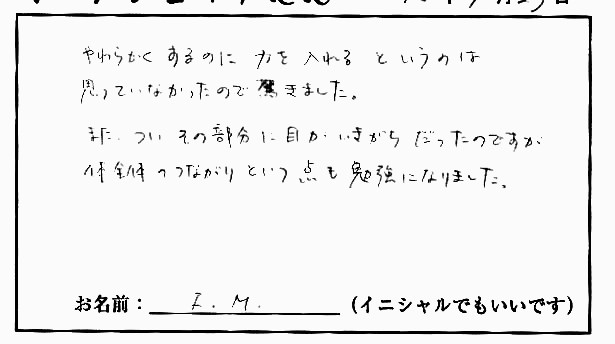 やわらかくするのに力を入れるというのは
思っていなかったので驚きました。
また、ついその部分に目がいきがちだったのですが
体全体のつながりという点も勉強になりました。
お名前：I.M.（イニシャルでもいいです）